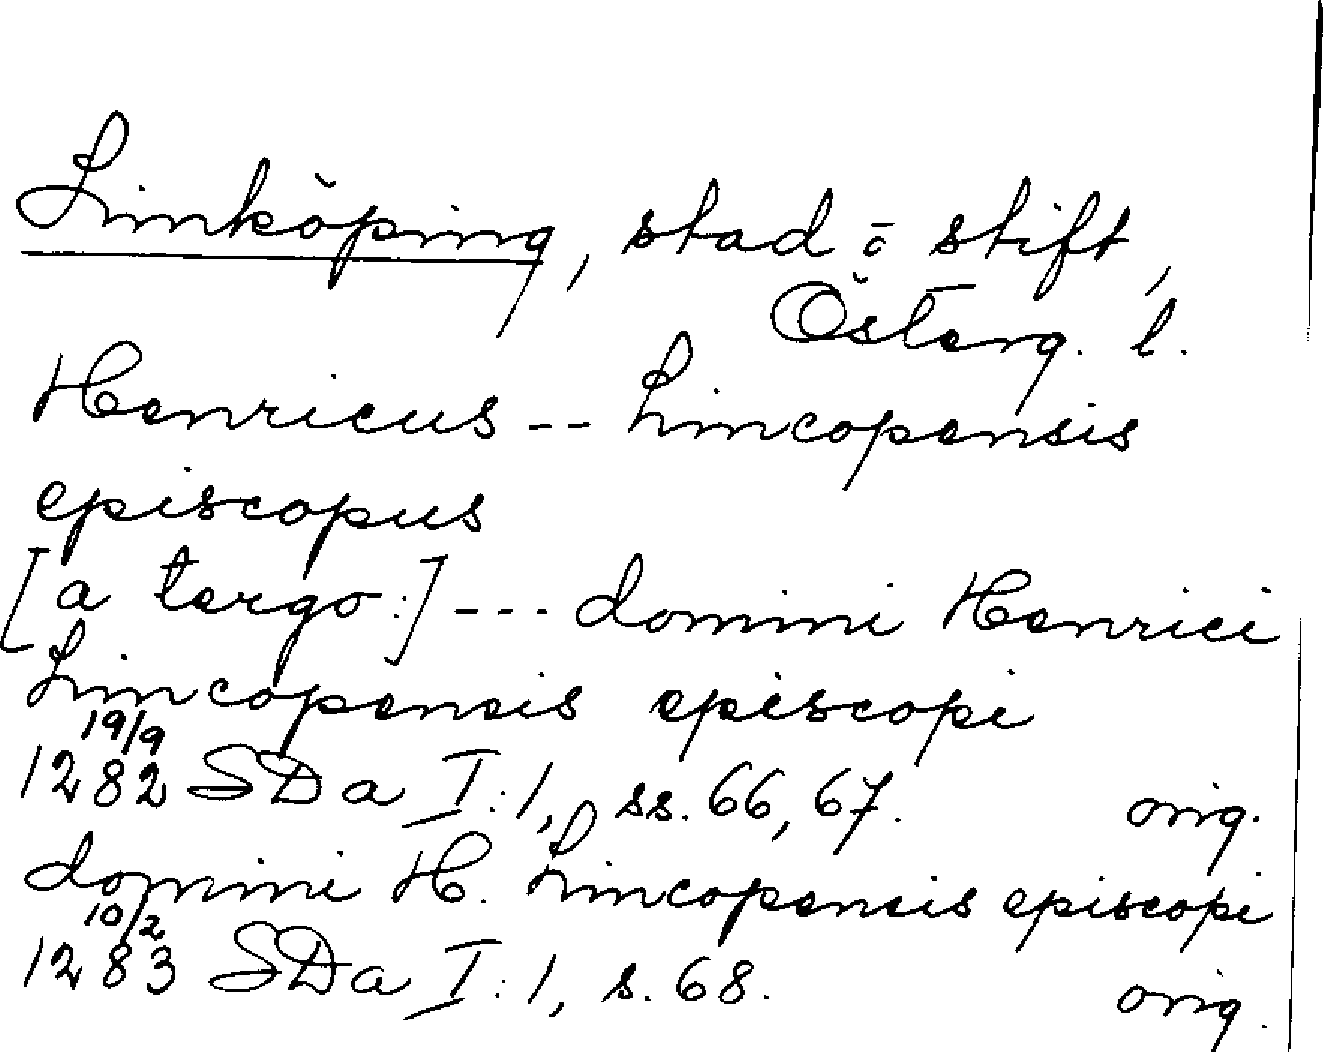 Linköping, stad o stift,
Österg. l.
Henricus -- Lincopensis
episcopus
[a tergo:] --- domini Henrici
Lincopensis episcopi
19/9
1282 SDa I:1, ss. 66, 67. orig.
domini H. Lincopensis episcopi
10/2
1283 SDa I:1, s. 68. orig.